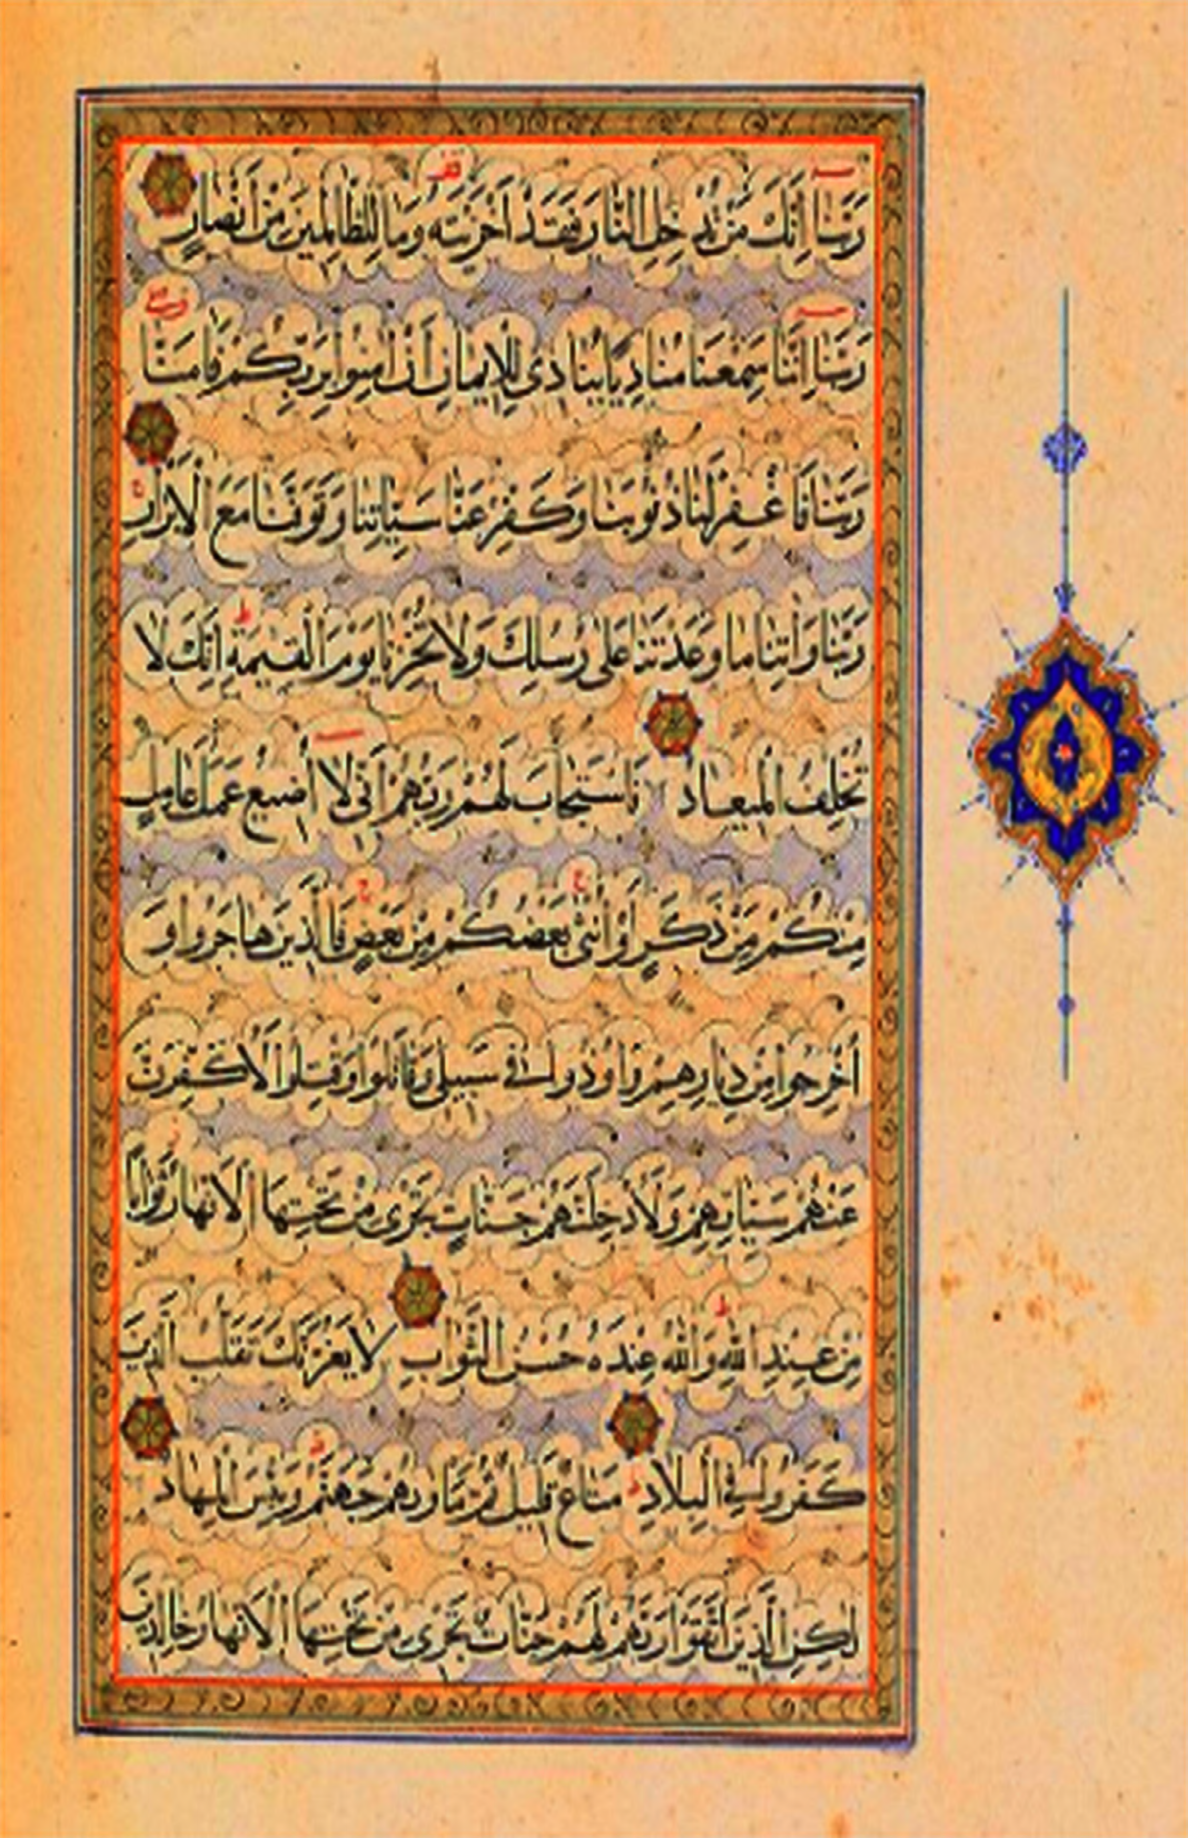 رَبَّنَا إِنَّكَ مَنْ تُدْخِلِ النَّارَ فَقَدْ أَخْزَيْتَهُ وَمَا لِلظَّالِمِينَ مِنْ أَنْصَارٍ
رَبَّنَا إِنَّنَا سَمِعْنَا مُنَادِيًا يُنَادِي لِلْإِيمَانِ أَنْ آمِنُوا بِرَبِّكُمْ فَآمَنَّا
رَبَّنَا فَاغْفِرْ لَنَا ذُنُوبَنَا وَكَفِّرْ عَنَّا سَيِّآتِنَا وَتَوَفَّنَا مَعَ الْأَبْرَارِ
رَبَّنَا وَآتِنَا مَا وَعَدْتَنَا عَلَى رُسُلِكَ وَلَا تُخْزِنَا يَوْمَ الْقِيمَةِ إِنَّكَ لَا
تُخْلِفُ الْمِيعَادَ فَاسْتَجَابَ لَهُمْ رَبُّهُمْ أَنِّي لَا أُضِيعُ عَمَلَ عَامِلٍ
مِنْكُمْ مِنْ ذَكَرٍ أَوْ أُنْثَى بَعْضُكُمْ مِنْ بَعْضٍ فَالَّذِينَ هَاجَرُوا وَ
أُخْرِجُوا مِنْ دِيَارِهِمْ وَأُوذُوا فِي سَبِيلِي وَقَاتَلُوا وَقُتِلُوا لَأُكَفِّرَنَّ
عَنْهُمْ سَيِّآتِهِمْ وَلَأُدْخِلَنَّهُمْ جَنَّاتٍ تَجْرِي مِنْ تَحْتِهَا الْأَنْهَارُ ثَوَابًا
مِنْ عِنْدِ اللَّهِ وَاللَّهُ عِنْدَهُ حُسْنُ الثَّوَابِ لَا يَغُرَّنَّكَ تَقَلُّبُ الَّذِينَ
كَفَرُوا فِي الْبِلَادِ مَتَاعٌ قَلِيلٌ ثُمَّ مَأْوَاهُمْ جَهَنَّمُ وَبِئْسَ الْمِهَادُ
لَكِنِ الَّذِينَ اتَّقَوْا رَبَّهُمْ لَهُمْ جَنَّاتٌ تَجْرِي مِنْ تَحْتِهَا الْأَنْهَارُ خَالِدِينَ